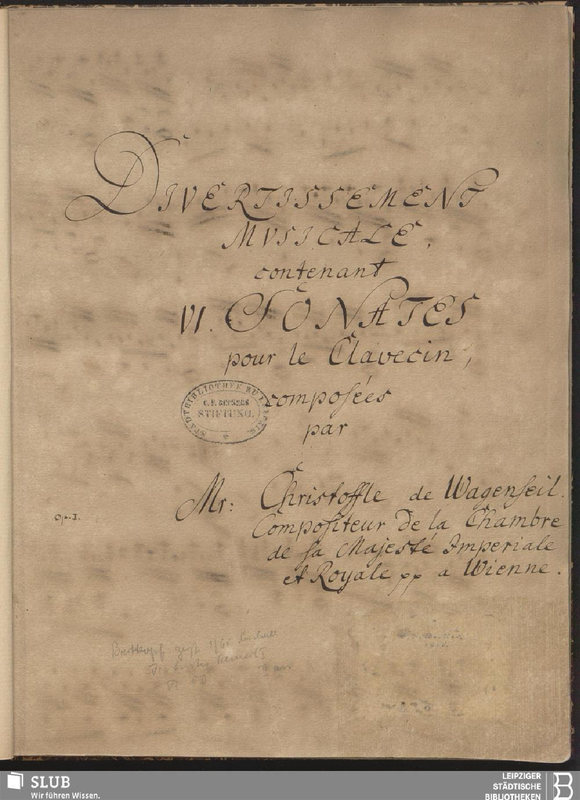 DIVERTISSEMENT
MVSICALE,
contenant
VI. SONATES
pour le Clavecin,
composées
par
STADTBIBLIOTHEK ZU LEIPZIG.
C. F. BECKERS
STIFTUNG.
Mr: Christoffle de Wagenseil.
Op. I.
Compositeur de la Chambre
de sa Majesté Imperiale
et Royale pp a Wienne.
SLUB
Wir führen Wissen.
LEIPZIGER
STÄDTISCHE
BIBLIOTHEKEN